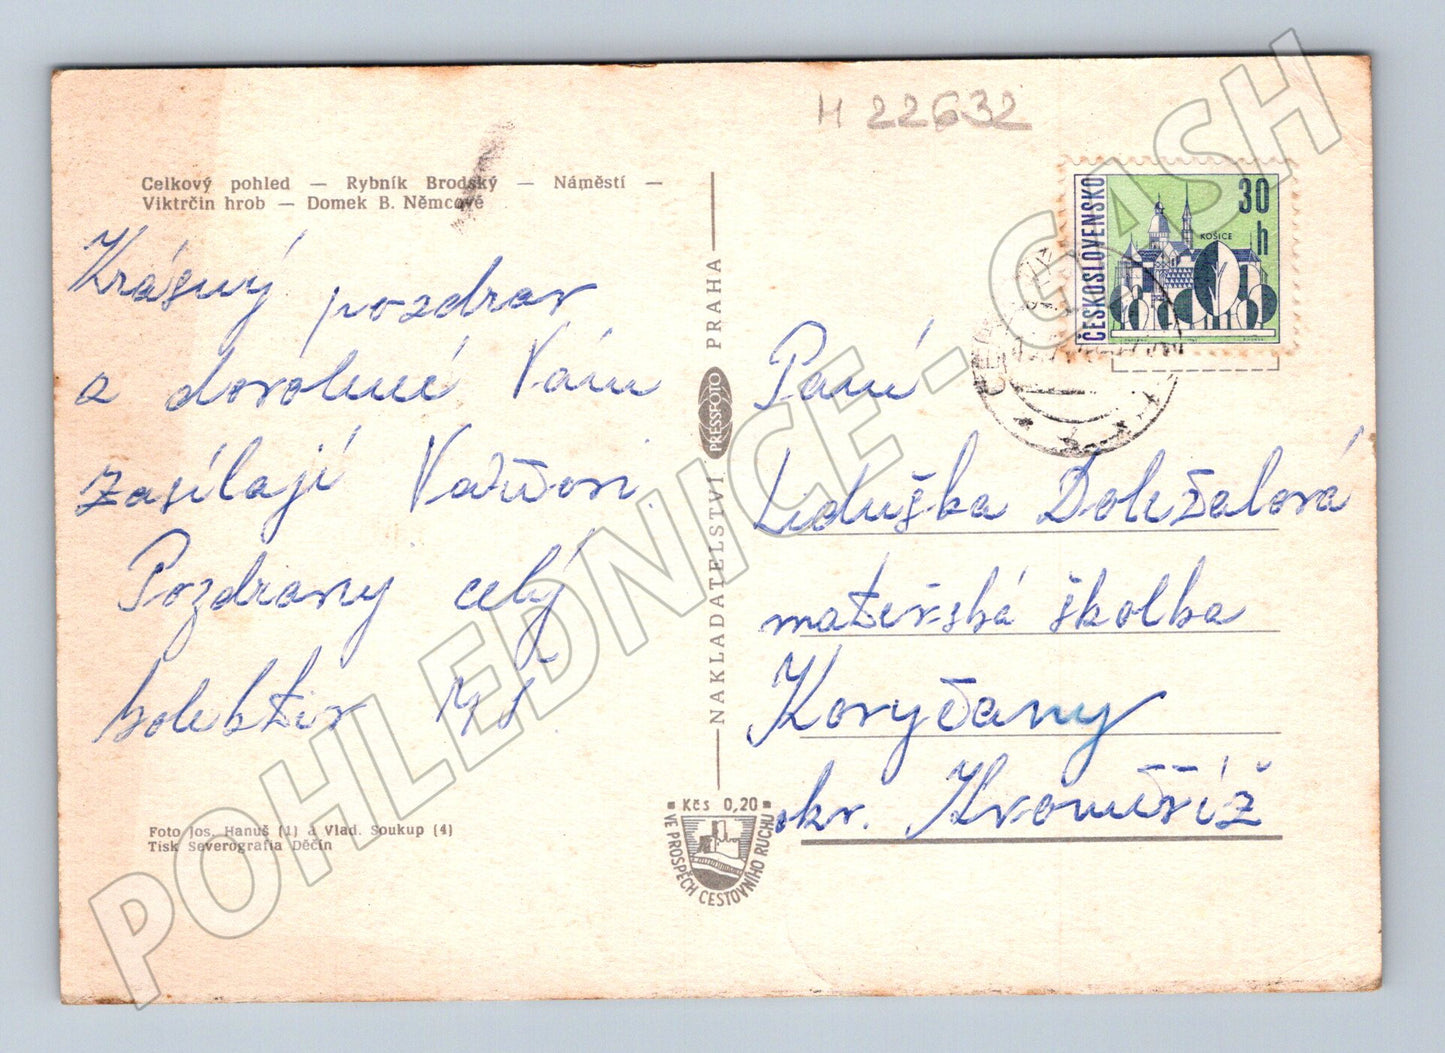 H 22632
Celkový pohled — Rybník Brodský — Náměstí —
Viktrčin hrob — Domek B. Němcové
Krásný pozdrav
a dovolené Vám
zasílají
Pozdravy celý
kolektiv
Foto Jos. Hanuš (1) a Vlad. Soukup (4)
Tisk Severografia Děčín
NAKLADATELSTVÍ PRESSFOTO PRAHA
Kčs 0,20
VE PROSPĚCH CESTOVNÍHO RUCHU
ČESKOSLOVENSKO
30 h
KOŠICE
Paní
Liduška Doležalová
mateřská školka
Koryčany
okr. Kroměříž
POHLEDNICE - CASH